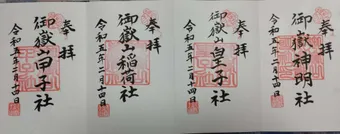 奉拝
御嶽山甲子社
令和五年二月十四日
奉拝
御嶽山稲荷社
令和五年二月十四日
奉拝
御嶽皇子社
令和五年二月十四日
奉拝
御嶽神明社
令和五年二月十四日